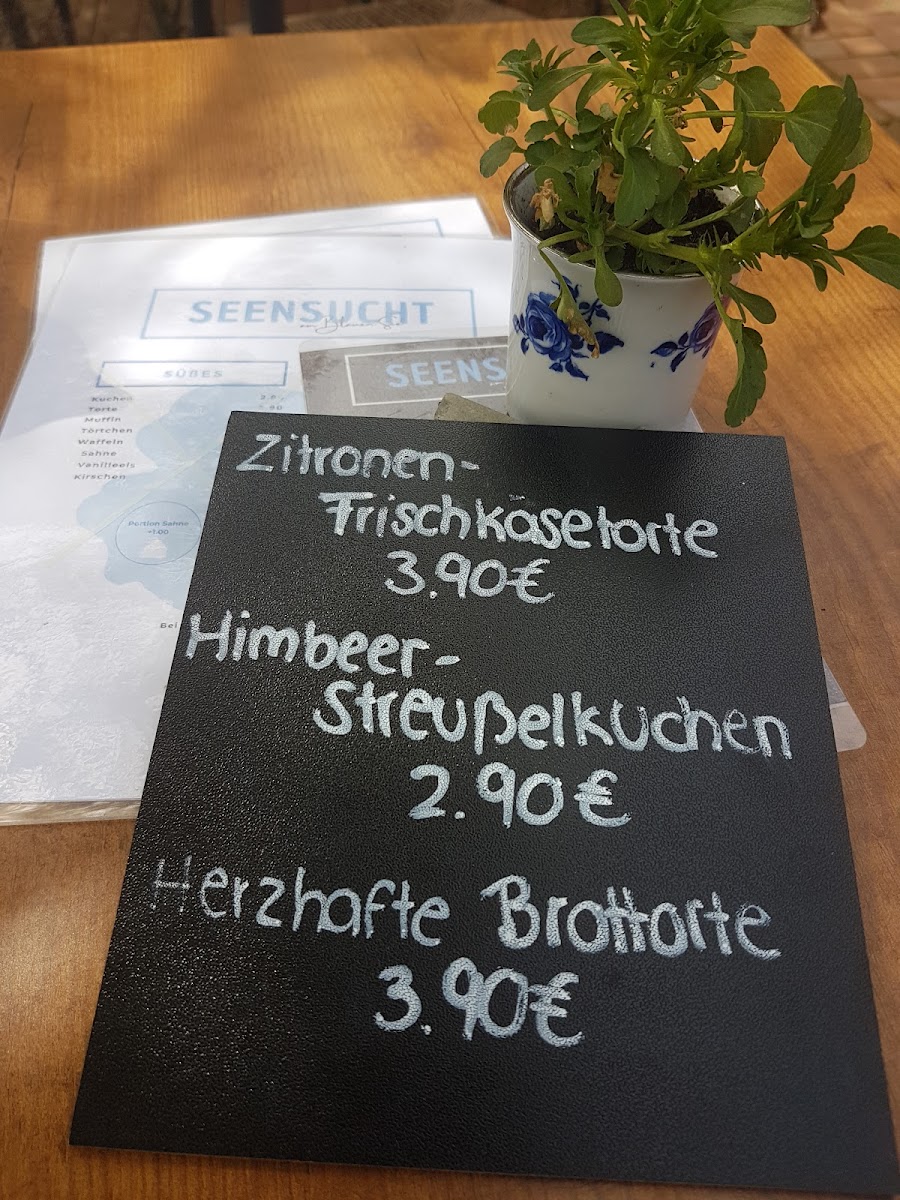 SEENSUCHT
am Blauen See
SÜßES
Kuchen
Torte
Muffin
Törtchen
Waffeln
Sahne
Vanilleeis
Kirschen
Portion Sahne
+1.00
Bei
SEENS
Zitronen-
Frischkäsetorte
3.90€
Himbeer-
Streußelkuchen
2.90€
Herzhafte Brottorte
3.90€